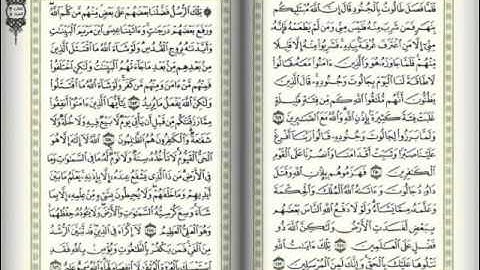 فَلَمَّا فَصَلَ طَالُوتُ بِٱلْجُنُودِ قَالَ إِنَّ ٱللَّهَ مُبْتَلِيكُم بِنَهَرٍ
فَمَن شَرِبَ مِنْهُ فَلَيْسَ مِنِّى وَمَن لَّمْ يَطْعَمْهُ فَإِنَّهُۥ
مِنِّىٓ إِلَّا مَنِ ٱغْتَرَفَ غُرْفَةًۢ بِيَدِهِۦ ۚ فَشَرِبُوا۟ مِنْهُ إِلَّا قَلِيلًا
مِّنْهُمْ ۚ فَلَمَّا جَاوَزَهُۥ هُوَ وَٱلَّذِينَ ءَامَنُوا۟ مَعَهُۥ قَالُوا۟
لَا طَاقَةَ لَنَا ٱلْيَوْمَ بِجَالُوتَ وَجُنُودِهِۦ ۚ قَالَ ٱلَّذِينَ
يَظُنُّونَ أَنَّهُم مُّلَٰقُوا۟ ٱللَّهِ كَم مِّن فِئَةٍ قَلِيلَةٍ
غَلَبَتْ فِئَةً كَثِيرَةًۢ بِإِذْنِ ٱللَّهِ ۗ وَٱللَّهُ مَعَ ٱلصَّٰبِرِينَ ٢٤٩
وَلَمَّا بَرَزُوا۟ لِجَالُوتَ وَجُنُودِهِۦ قَالُوا۟ رَبَّنَآ أَفْرِغْ
عَلَيْنَا صَبْرًا وَثَبِّتْ أَقْدَامَنَا وَٱنصُرْنَا عَلَى ٱلْقَوْمِ
ٱلْكَٰفِرِينَ ٢٥٠ فَهَزَمُوهُم بِإِذْنِ ٱللَّهِ وَقَتَلَ
دَاوُۥدُ جَالُوتَ وَءَاتَىٰهُ ٱللَّهُ ٱلْمُلْكَ وَٱلْحِكْمَةَ
وَعَلَّمَهُۥ مِمَّا يَشَآءُ ۗ وَلَوْلَا دَفْعُ ٱللَّهِ ٱلنَّاسَ بَعْضَهُم
بِبَعْضٍ لَّفَسَدَتِ ٱلْأَرْضُ وَلَٰكِنَّ ٱللَّهَ ذُو
فَضْلٍ عَلَى ٱلْعَٰلَمِينَ ٢٥١ تِلْكَ ءَايَٰتُ ٱللَّهِ
نَتْلُوهَا عَلَيْكَ بِٱلْحَقِّ ۚ وَإِنَّكَ لَمِنَ ٱلْمُرْسَلِينَ ٢٥٢
۞ تِلْكَ ٱلرُّسُلُ فَضَّلْنَا بَعْضَهُمْ عَلَىٰ بَعْضٍ ۘ مِّنْهُم مَّن كَلَّمَ ٱللَّهُ ۖ
وَرَفَعَ بَعْضَهُمْ دَرَجَٰتٍ ۚ وَءَاتَيْنَا عِيسَى ٱبْنَ مَرْيَمَ ٱلْبَيِّنَٰتِ
وَأَيَّدْنَٰهُ بِرُوحِ ٱلْقُدُسِ ۗ وَلَوْ شَآءَ ٱللَّهُ مَا ٱقْتَتَلَ ٱلَّذِينَ
مِنۢ بَعْدِهِم مِّنۢ بَعْدِ مَا جَآءَتْهُمُ ٱلْبَيِّنَٰتُ وَلَٰكِنِ ٱخْتَلَفُوا۟
فَمِنْهُم مَّنْ ءَامَنَ وَمِنْهُم مَّن كَفَرَ ۚ وَلَوْ شَآءَ ٱللَّهُ مَا ٱقْتَتَلُوا۟
وَلَٰكِنَّ ٱللَّهَ يَفْعَلُ مَا يُرِيدُ ٢٥٣ يَٰٓأَيُّهَا ٱلَّذِينَ ءَامَنُوٓا۟ أَنفِقُوا۟
مِمَّا رَزَقْنَٰكُم مِّن قَبْلِ أَن يَأْتِىَ يَوْمٌ لَّا بَيْعٌ فِيهِ وَلَا خُلَّةٌ وَلَا
شَفَٰعَةٌ ۗ وَٱلْكَٰفِرُونَ هُمُ ٱلظَّٰلِمُونَ ٢٥٤ ٱللَّهُ لَآ إِلَٰهَ إِلَّا هُوَ
ٱلْحَىُّ ٱلْقَيُّومُ ۚ لَا تَأْخُذُهُۥ سِنَةٌ وَلَا نَوْمٌ ۚ لَّهُۥ مَا فِى ٱلسَّمَٰوَٰتِ وَمَا
فِى ٱلْأَرْضِ ۗ مَن ذَا ٱلَّذِى يَشْفَعُ عِندَهُۥٓ إِلَّا بِإِذْنِهِۦ ۚ يَعْلَمُ مَا بَيْنَ
أَيْدِيهِمْ وَمَا خَلْفَهُمْ ۖ وَلَا يُحِيطُونَ بِشَىْءٍ مِّنْ عِلْمِهِۦٓ إِلَّا بِمَا
شَآءَ ۚ وَسِعَ كُرْسِيُّهُ ٱلسَّمَٰوَٰتِ وَٱلْأَرْضَ ۖ وَلَا يَـُٔودُهُۥ حِفْظُهُمَا ۚ
وَهُوَ ٱلْعَلِىُّ ٱلْعَظِيمُ ٢٥٥ لَآ إِكْرَاهَ فِى ٱلدِّينِ ۖ قَد تَّبَيَّنَ ٱلرُّشْدُ
مِنَ ٱلْغَىِّ ۚ فَمَن يَكْفُرْ بِٱلطَّٰغُوتِ وَيُؤْمِنۢ بِٱللَّهِ فَقَدِ